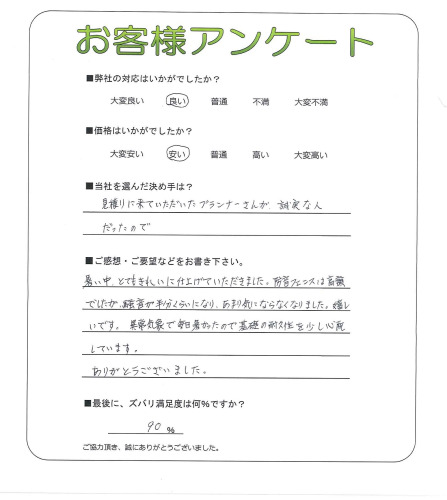 お客様アンケート
■弊社の対応はいかがでしたか？
大変良い 良い 普通 不満 大変不満
■価格はいかがでしたか？
大変安い 安い 普通 高い 大変高い
■当社を選んだ決め手は？
見積りに来ていただいたプランナーさんが、誠実な人
だったので
■ご感想・ご要望などをお書き下さい。
暑い中、とてもきれいに仕上げていただきました。防音フェンスは高額
でしたが、騒音が半分くらいになり、あまり気にならなくなりました。嬉し
いです。異常気象で毎日暑かったので基礎の耐久性を少し心配
しています。
ありがとうございました。
■最後に、ズバリ満足度は何％ですか？
90 %
ご協力頂き、誠にありがとうございました。